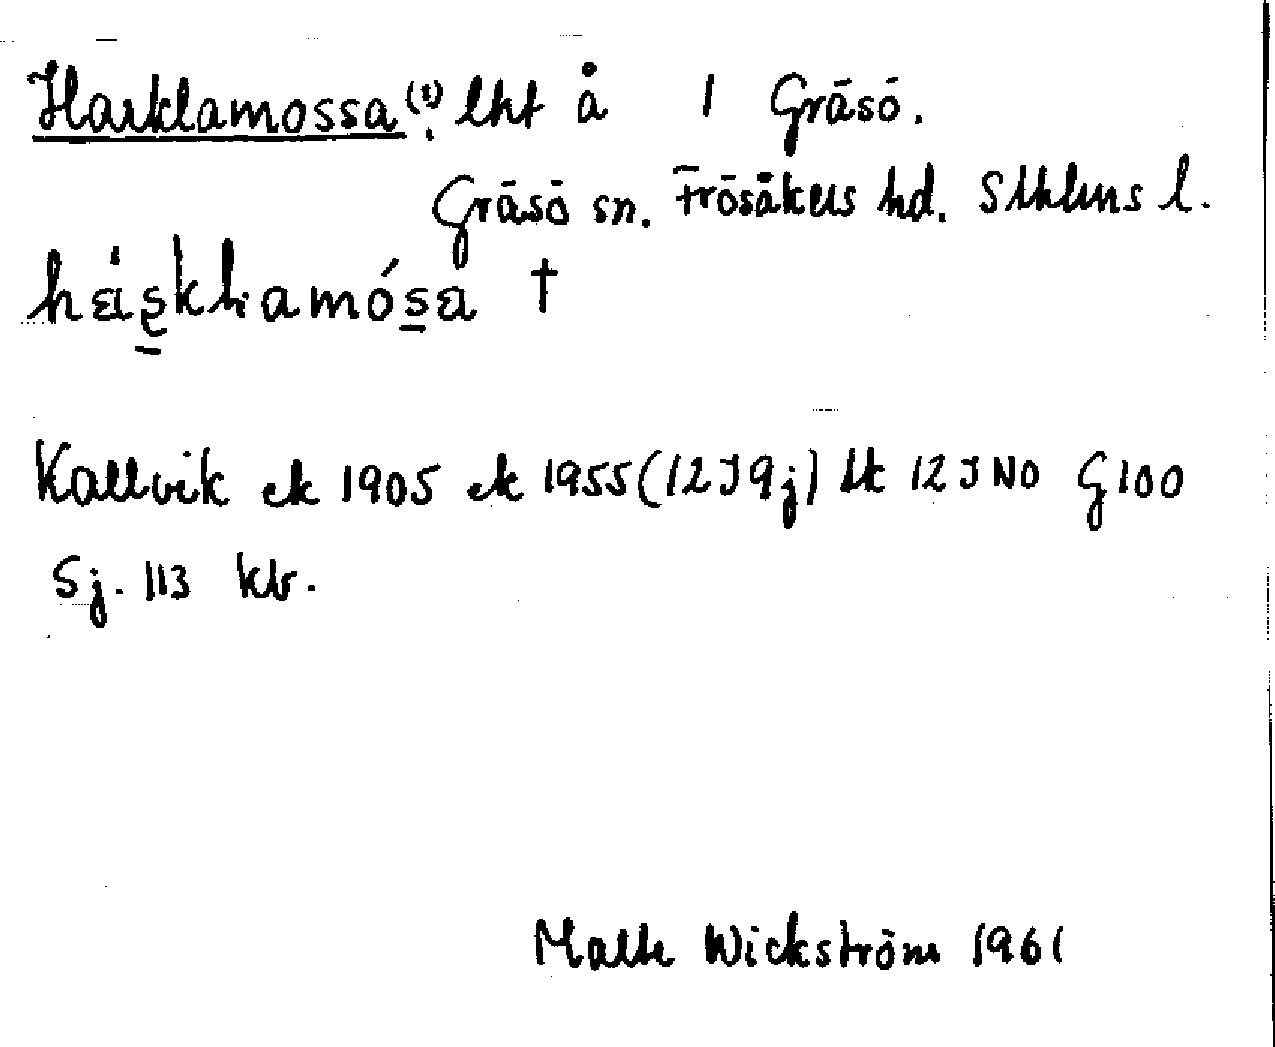 Harklamossa (!) lht å 1 Gräsö.
Gräsö sn. Frösåkers hd. Sthlms l.
Kallvik ek 1905 ek 1955 (12 I 9 j) tk 12 I NO G 100
Sj. 113 kb.
Malte Wickström 1961